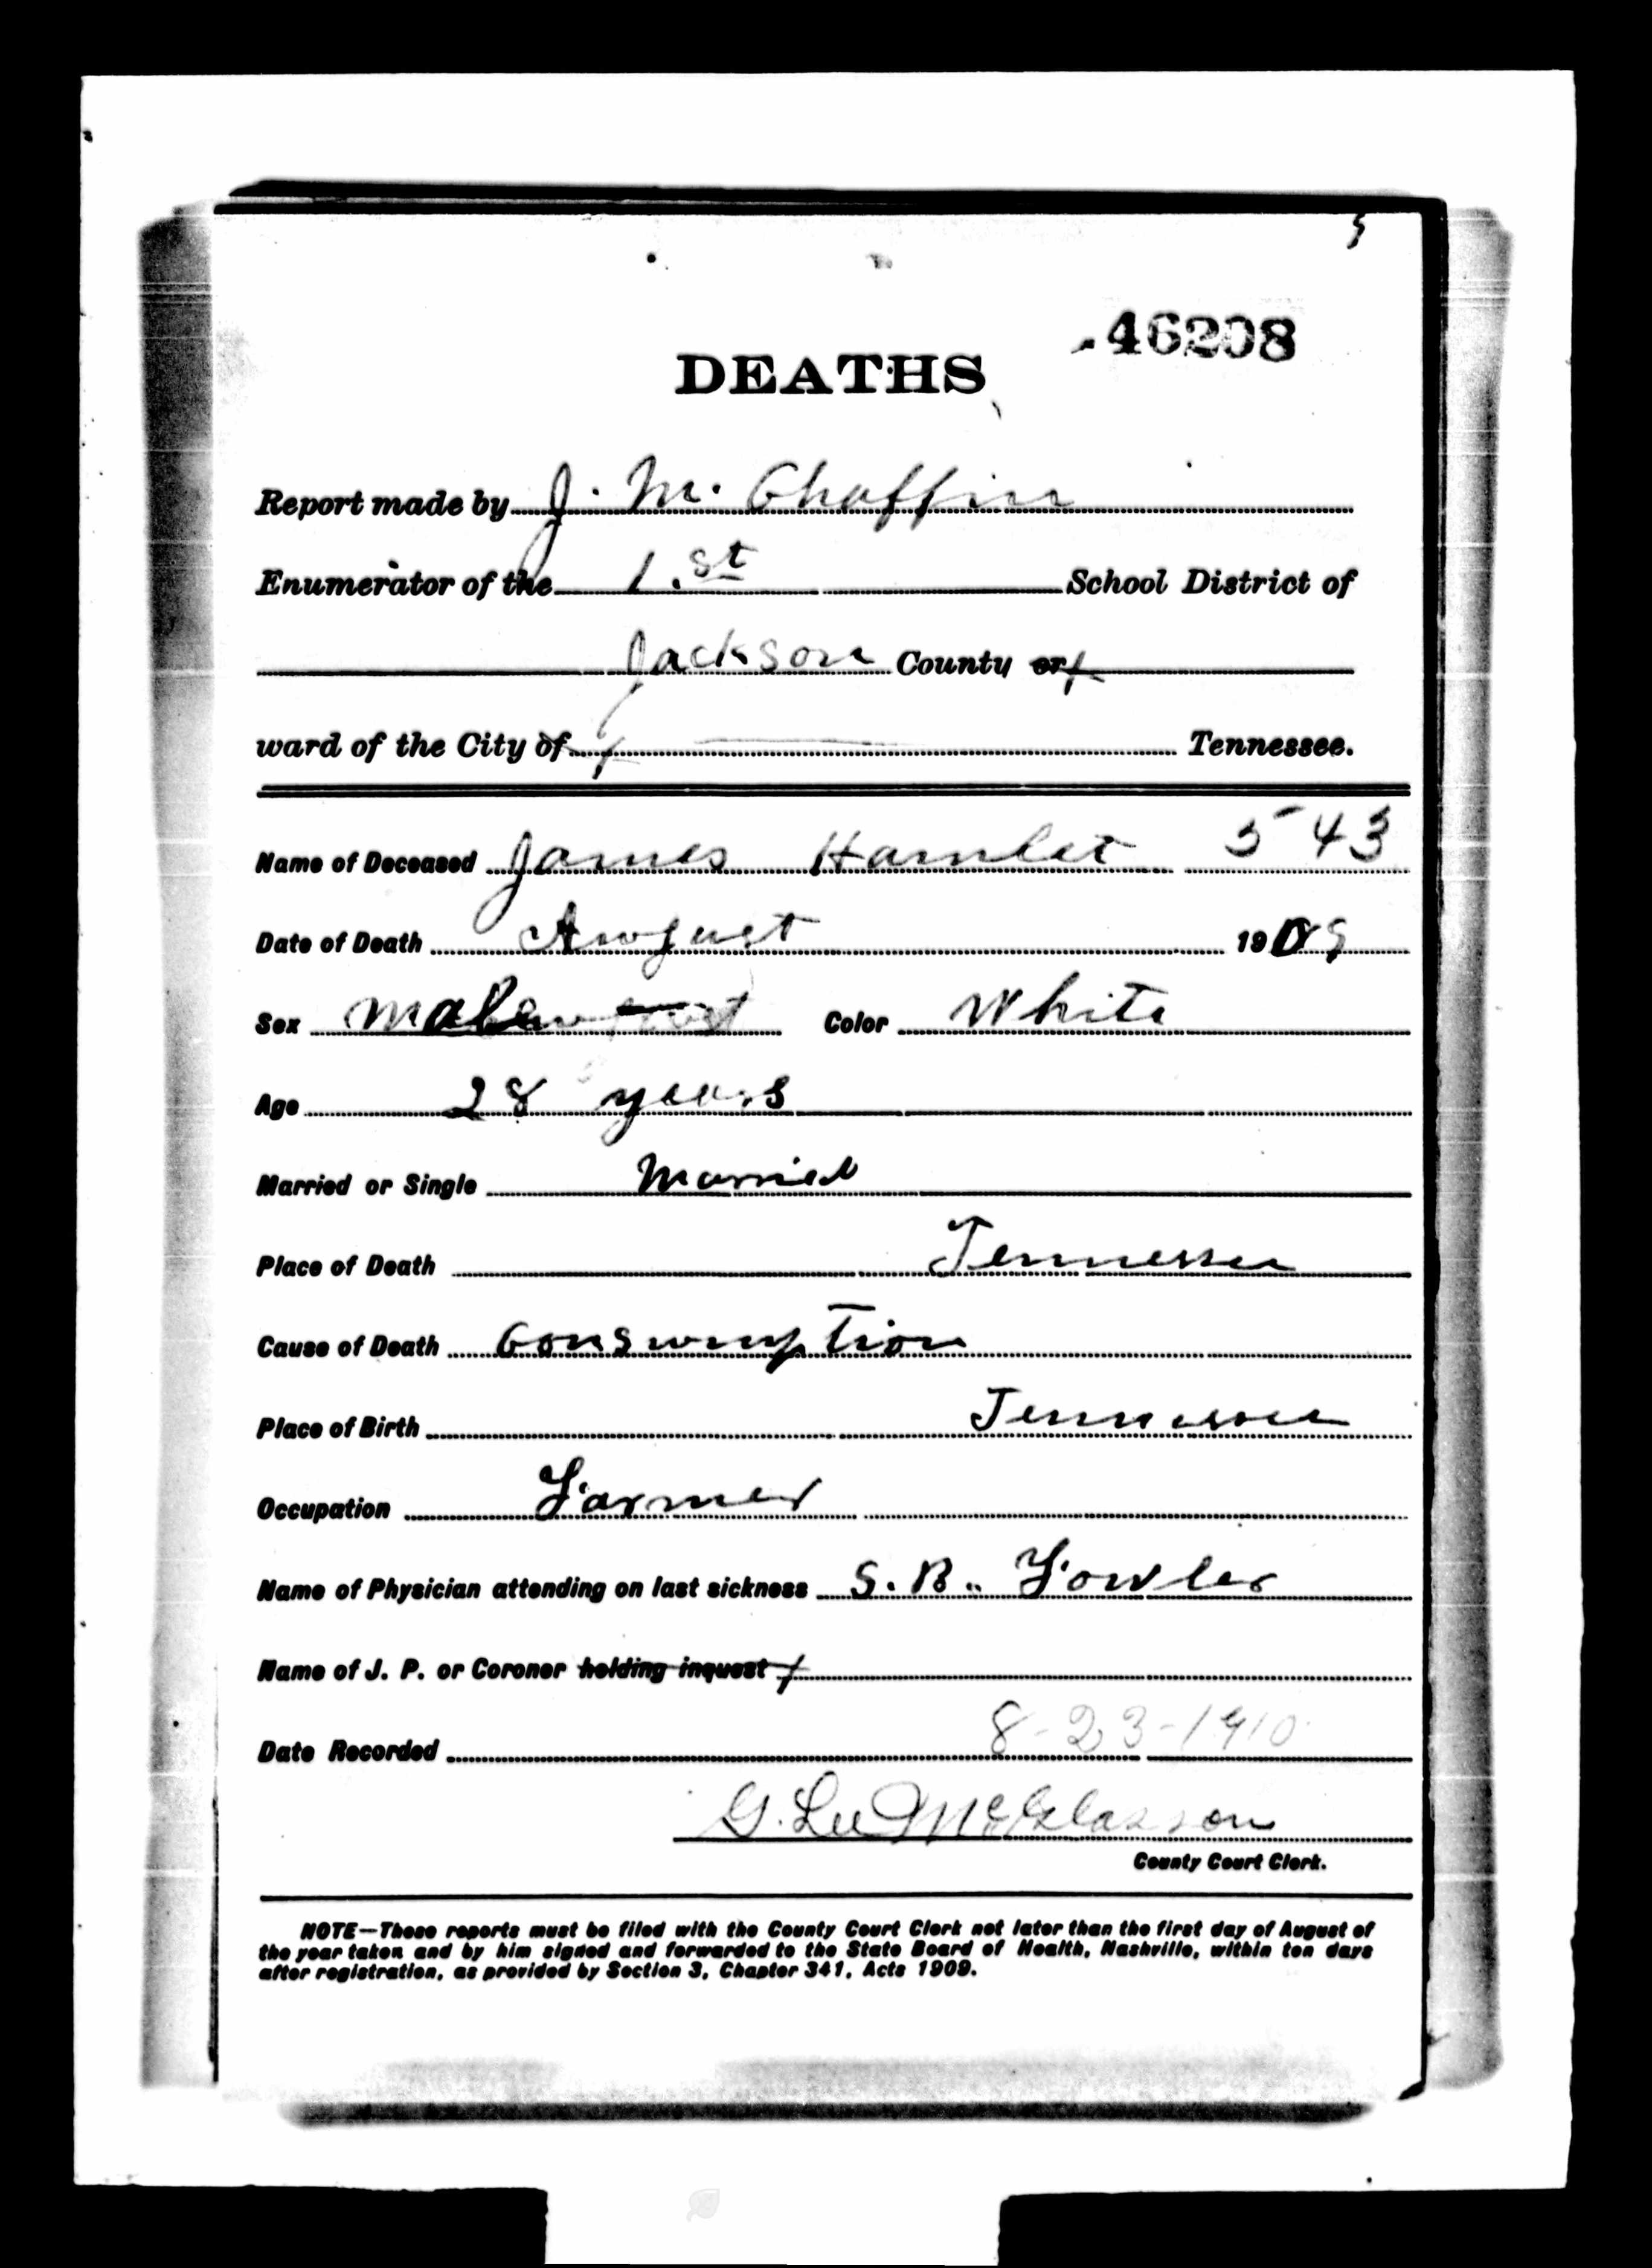 46208
DEATHS
Report made by J. M. Chaffin
Enumerator of the 1.st School District of
Jackson County or
ward of the City of Tennessee.
Name of Deceased James Hamlet 543
Date of Death August 1909
Sex Male Color White
Age 28 years
Married or Single Married
Place of Death Tennessee
Cause of Death Conswmption
Place of Birth Tennessee
Occupation Farmer
Name of Physician attending on last sickness S. B. Fowler
Name of J. P. or Coroner holding inquest
Date Recorded 8-23-1910
G. Lee McGlasson
County Court Clerk.
NOTE—These reports must be filed with the County Court Clerk not later than the first day of August of
the year taken and by him signed and forwarded to the State Board of Health, Nashville, within ten days
after registration, as provided by Section 3, Chapter 341, Acts 1909.